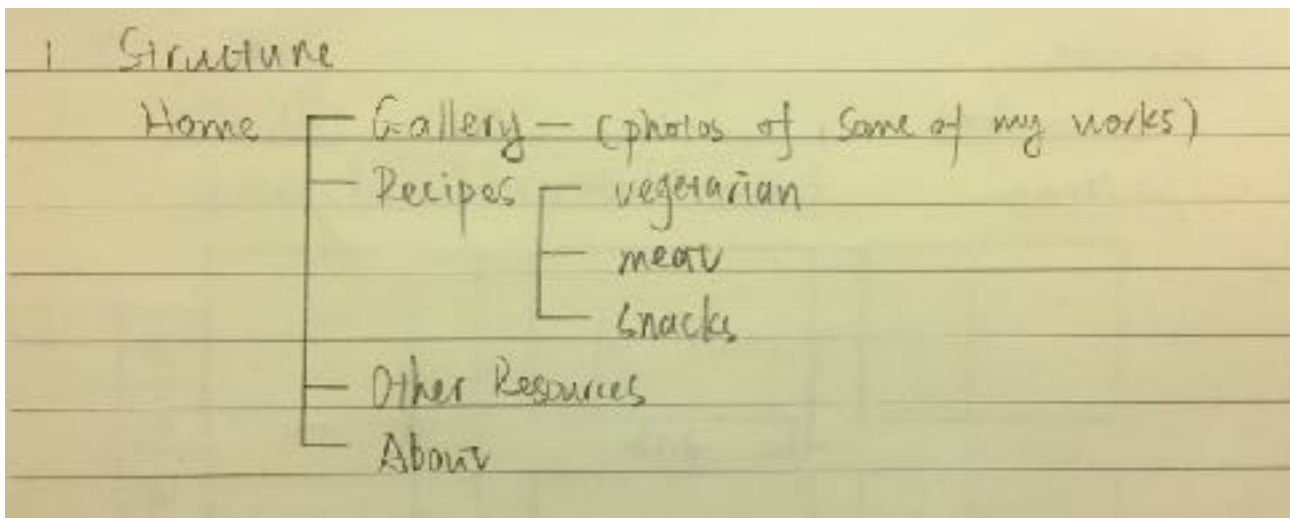 1 Structure
Home Gallery — (photos of some of my works)
Recipes vegetarian
meat
snacks
Other Resources
About